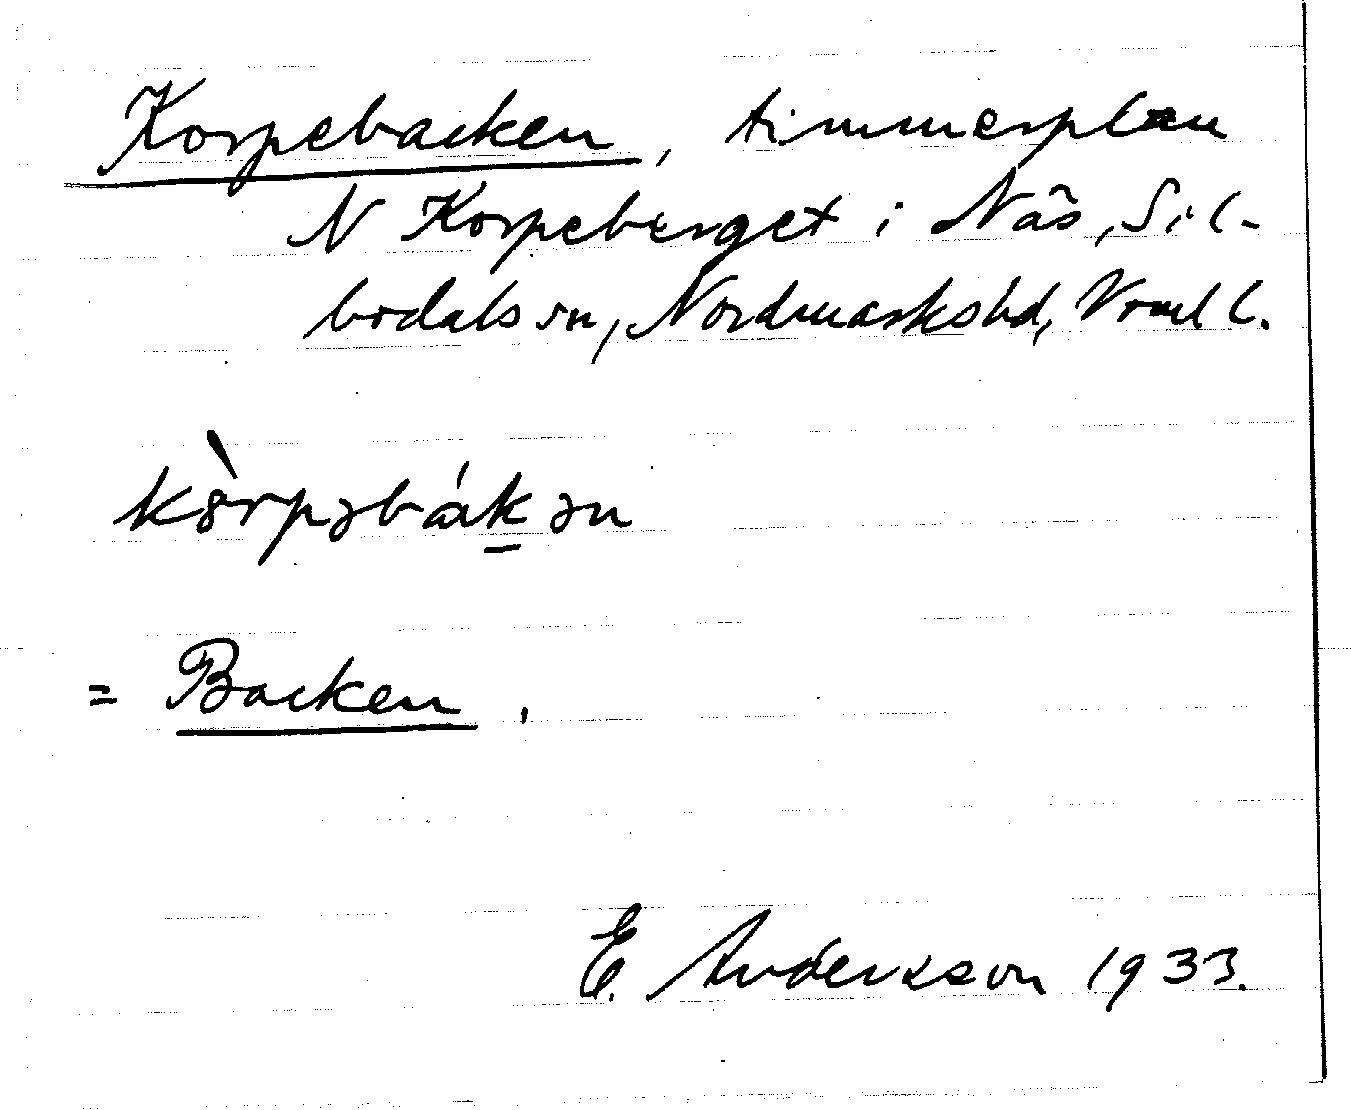 Korpebacken, timmerplan
N Korpeberget i Näs, Sil-
bodals sn, Nordmarks hd, Vrml l.
kȯ̀rpəbák̠ən
= Backen.
E. Andersson 1933.